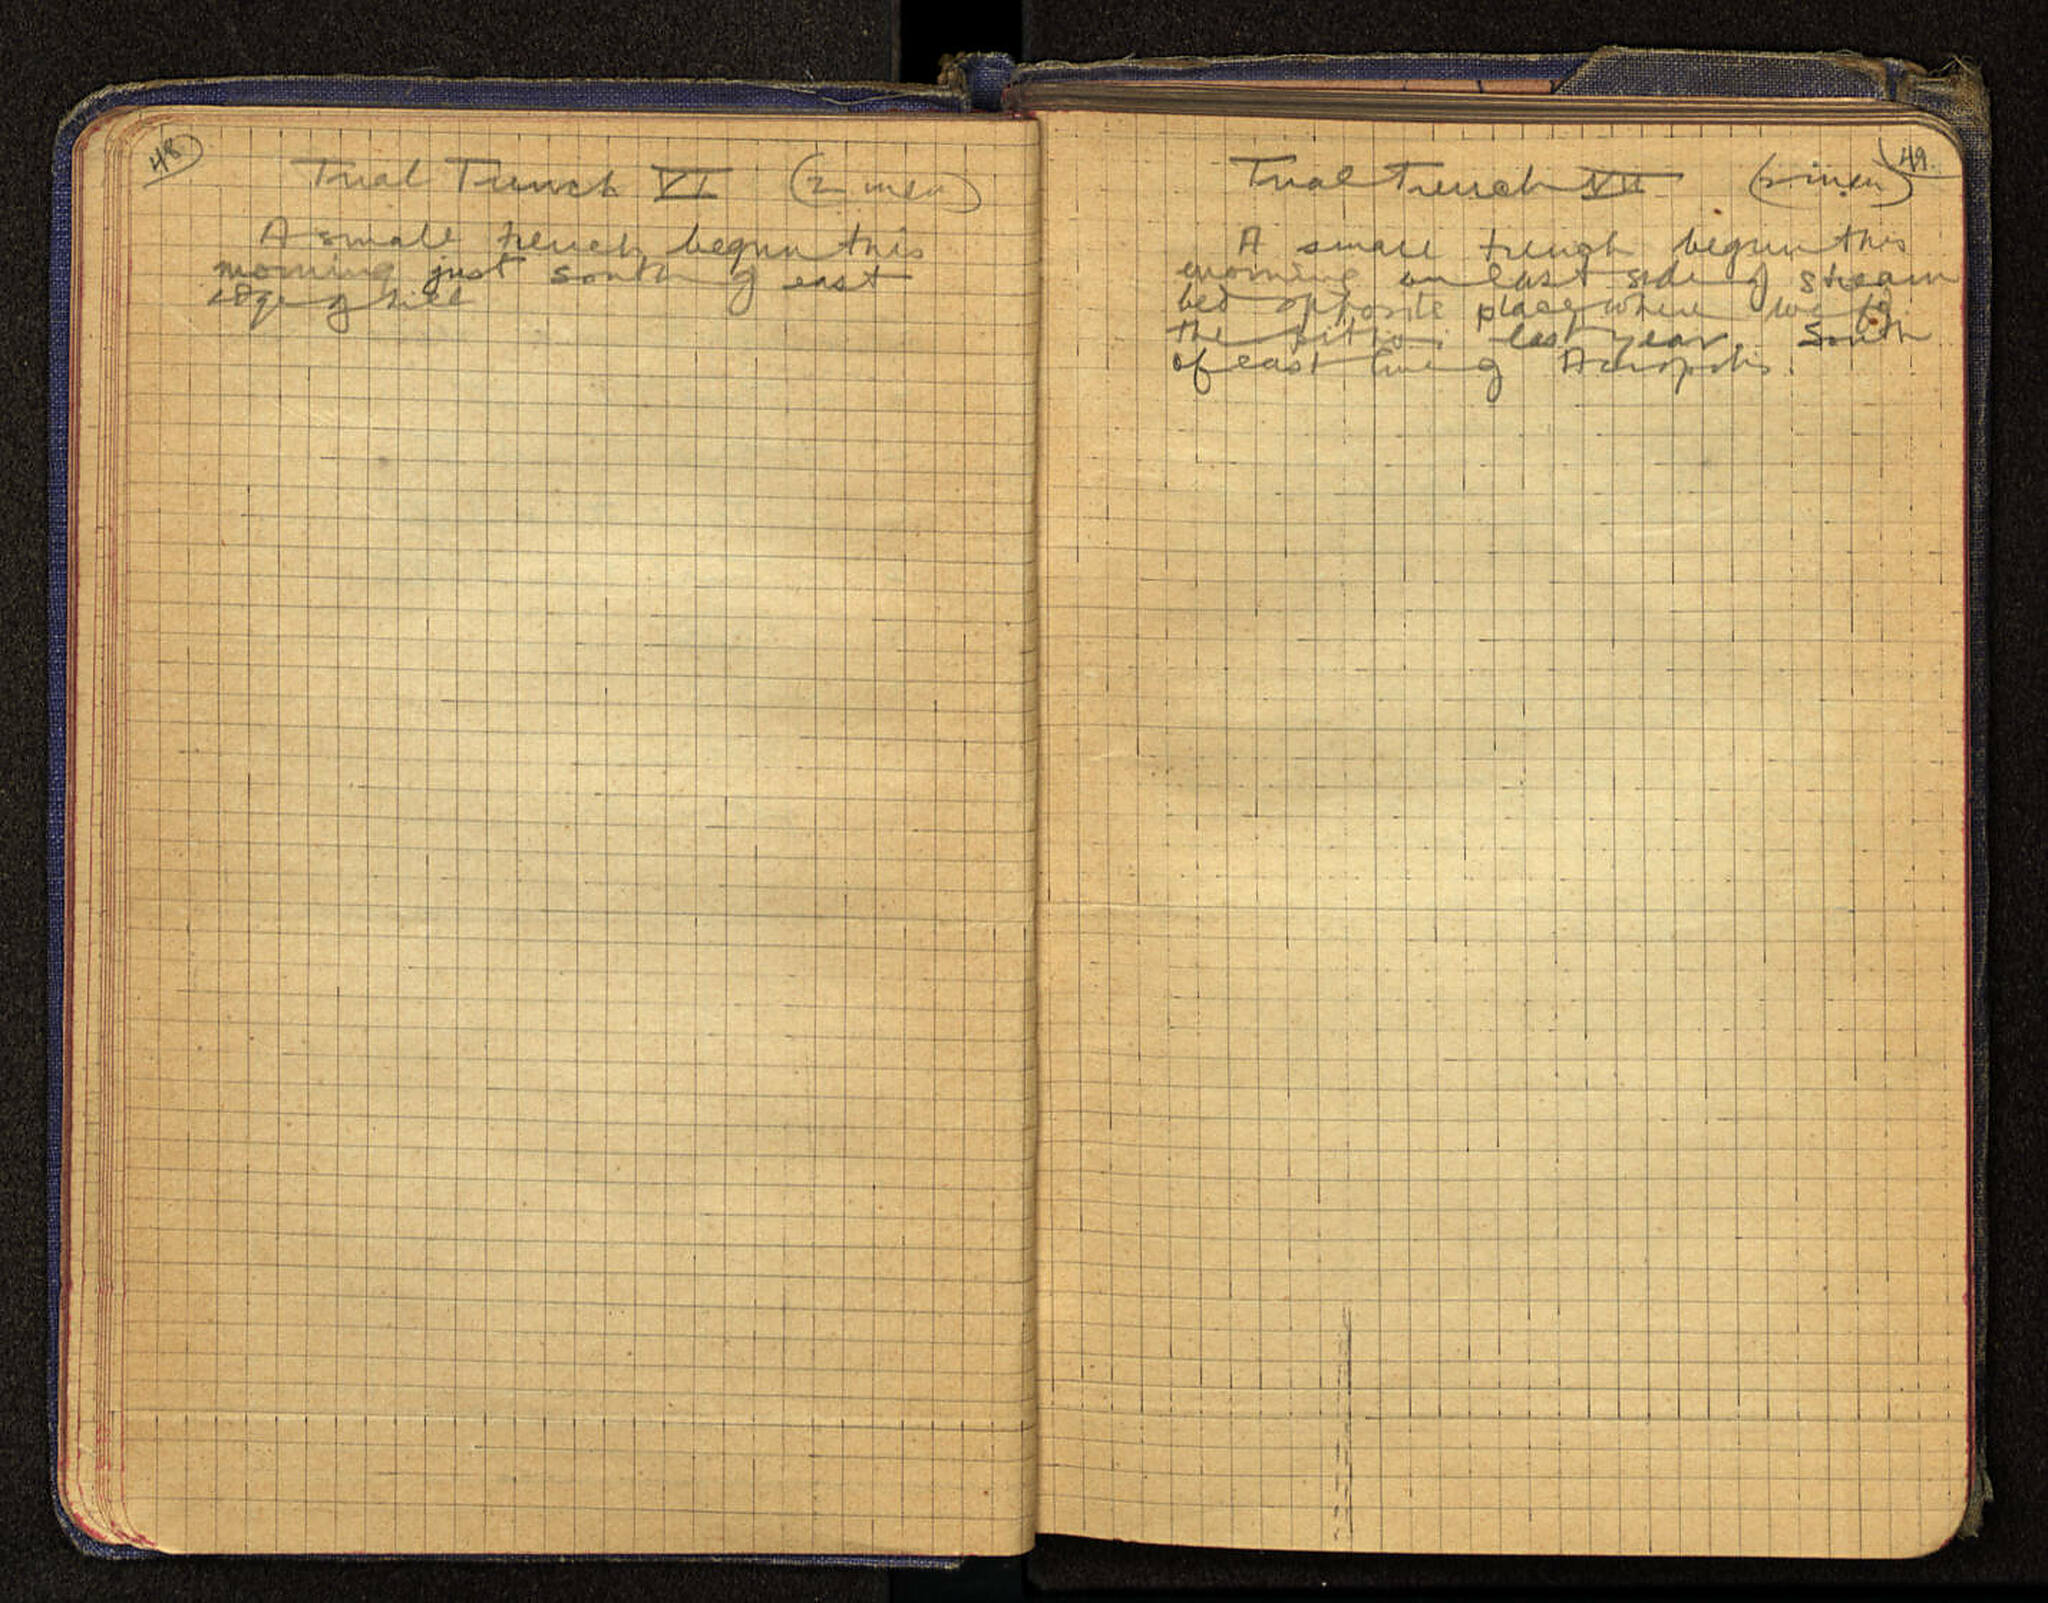 48
Trial Trench VI (2 men)
A small trench begun this
morning just south of east
edge of hill
49.
Trial Trench VII (2 men)
A small trench begun this
morning on east side of stream
bed opposite place where we
the pithoi last year. South
of east line of Acropolis.